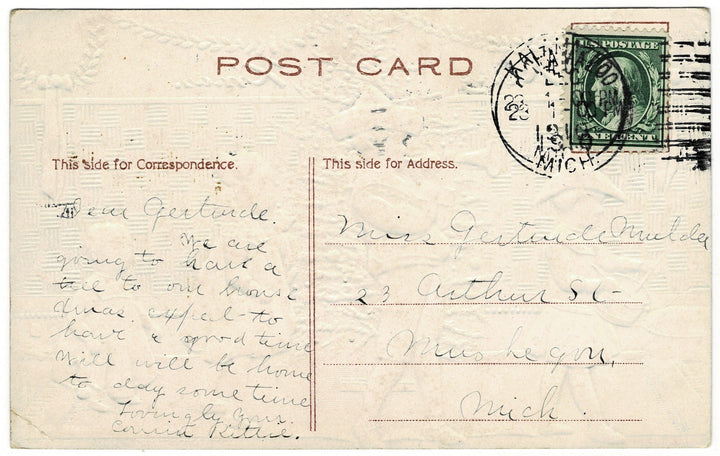 POST CARD
U.S. POSTAGE
ONE CENT
MICH.
This side for Correspondence.
This side for Address.
Dear Gertrude.
We are
going to have a
tree to our house
Xmas. expect to
have a good time
Will will be home
to day some time
Lovingly your
Cousin Kittie.
Miss Gertrude Mulder
23 Arthur St
Muskegon,
Mich.